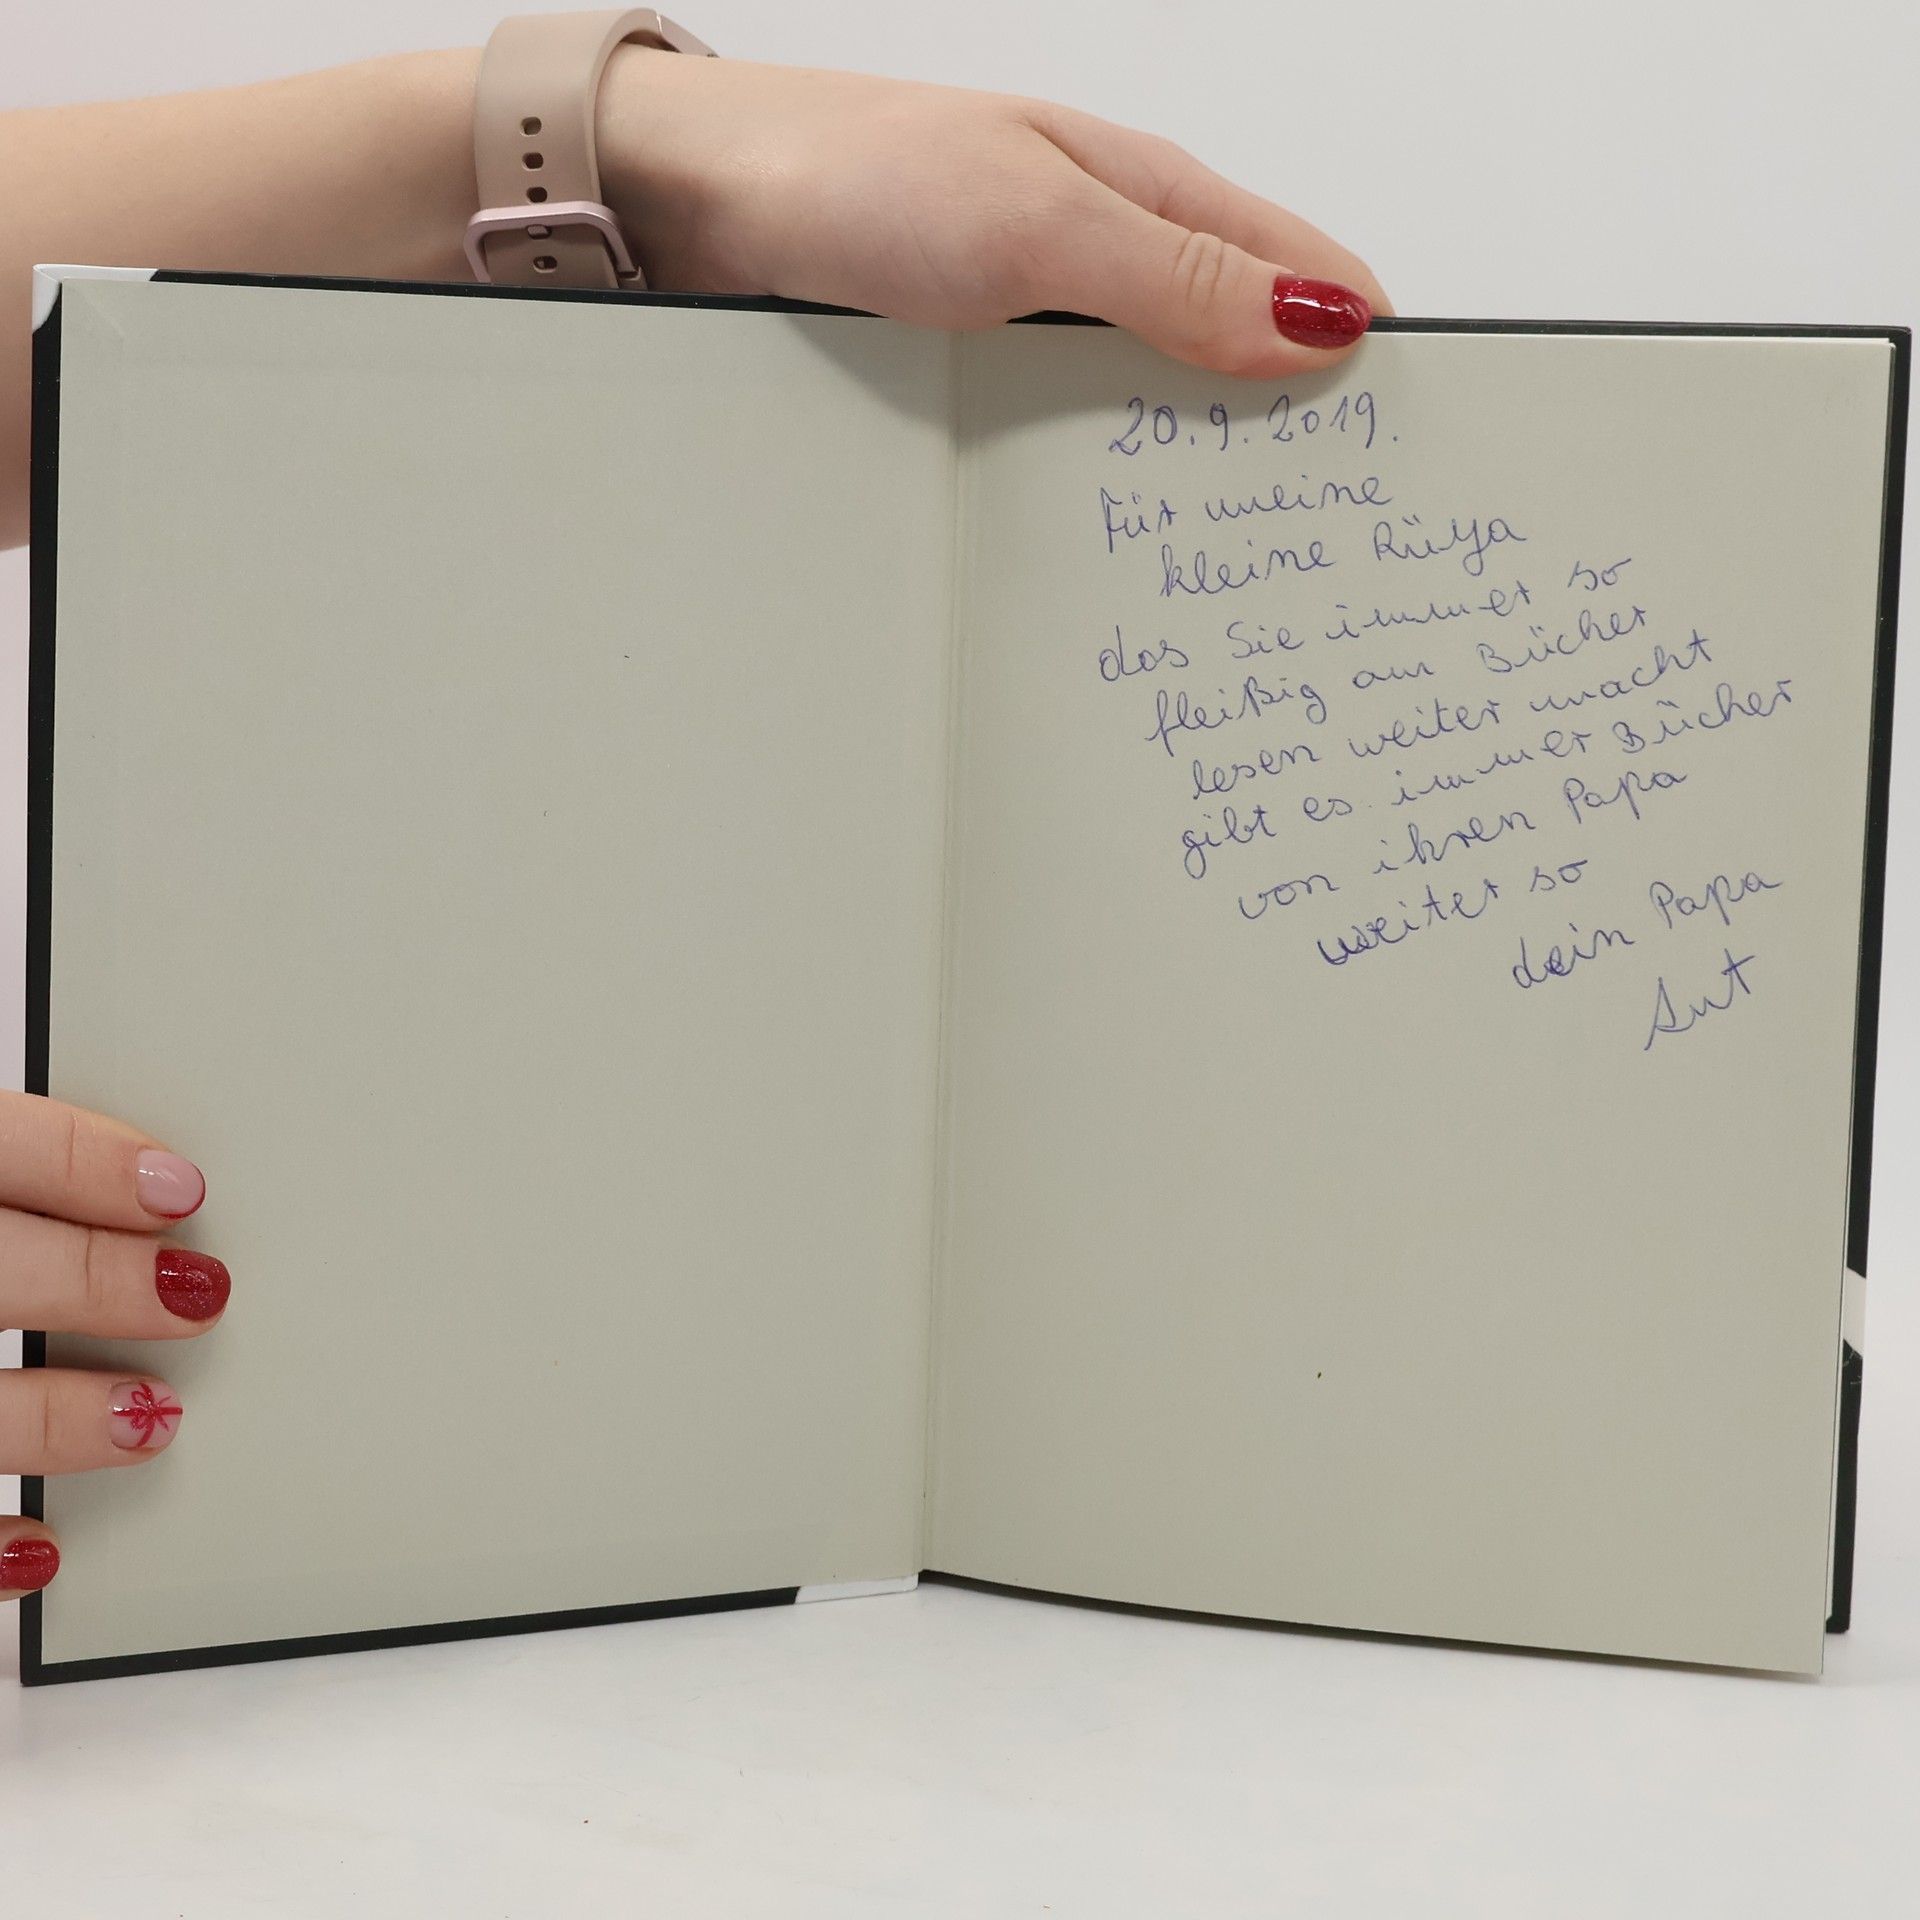 20.9.2019.
Für meine
kleine Rüya
das Sie immer so
fleißig am Bücher
lesen weiter macht
gibt es immer Bücher
von ihren Papa
weiter so
dein Papa